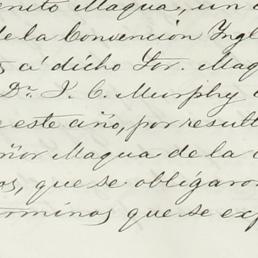 enito Maqua, un
de la Convencion Ingl
á dicho Sor. Maq
Dr. J. C. Murphy
este año, por result
ñor Maqua de la
os, que se obligaro
erminos que se exp